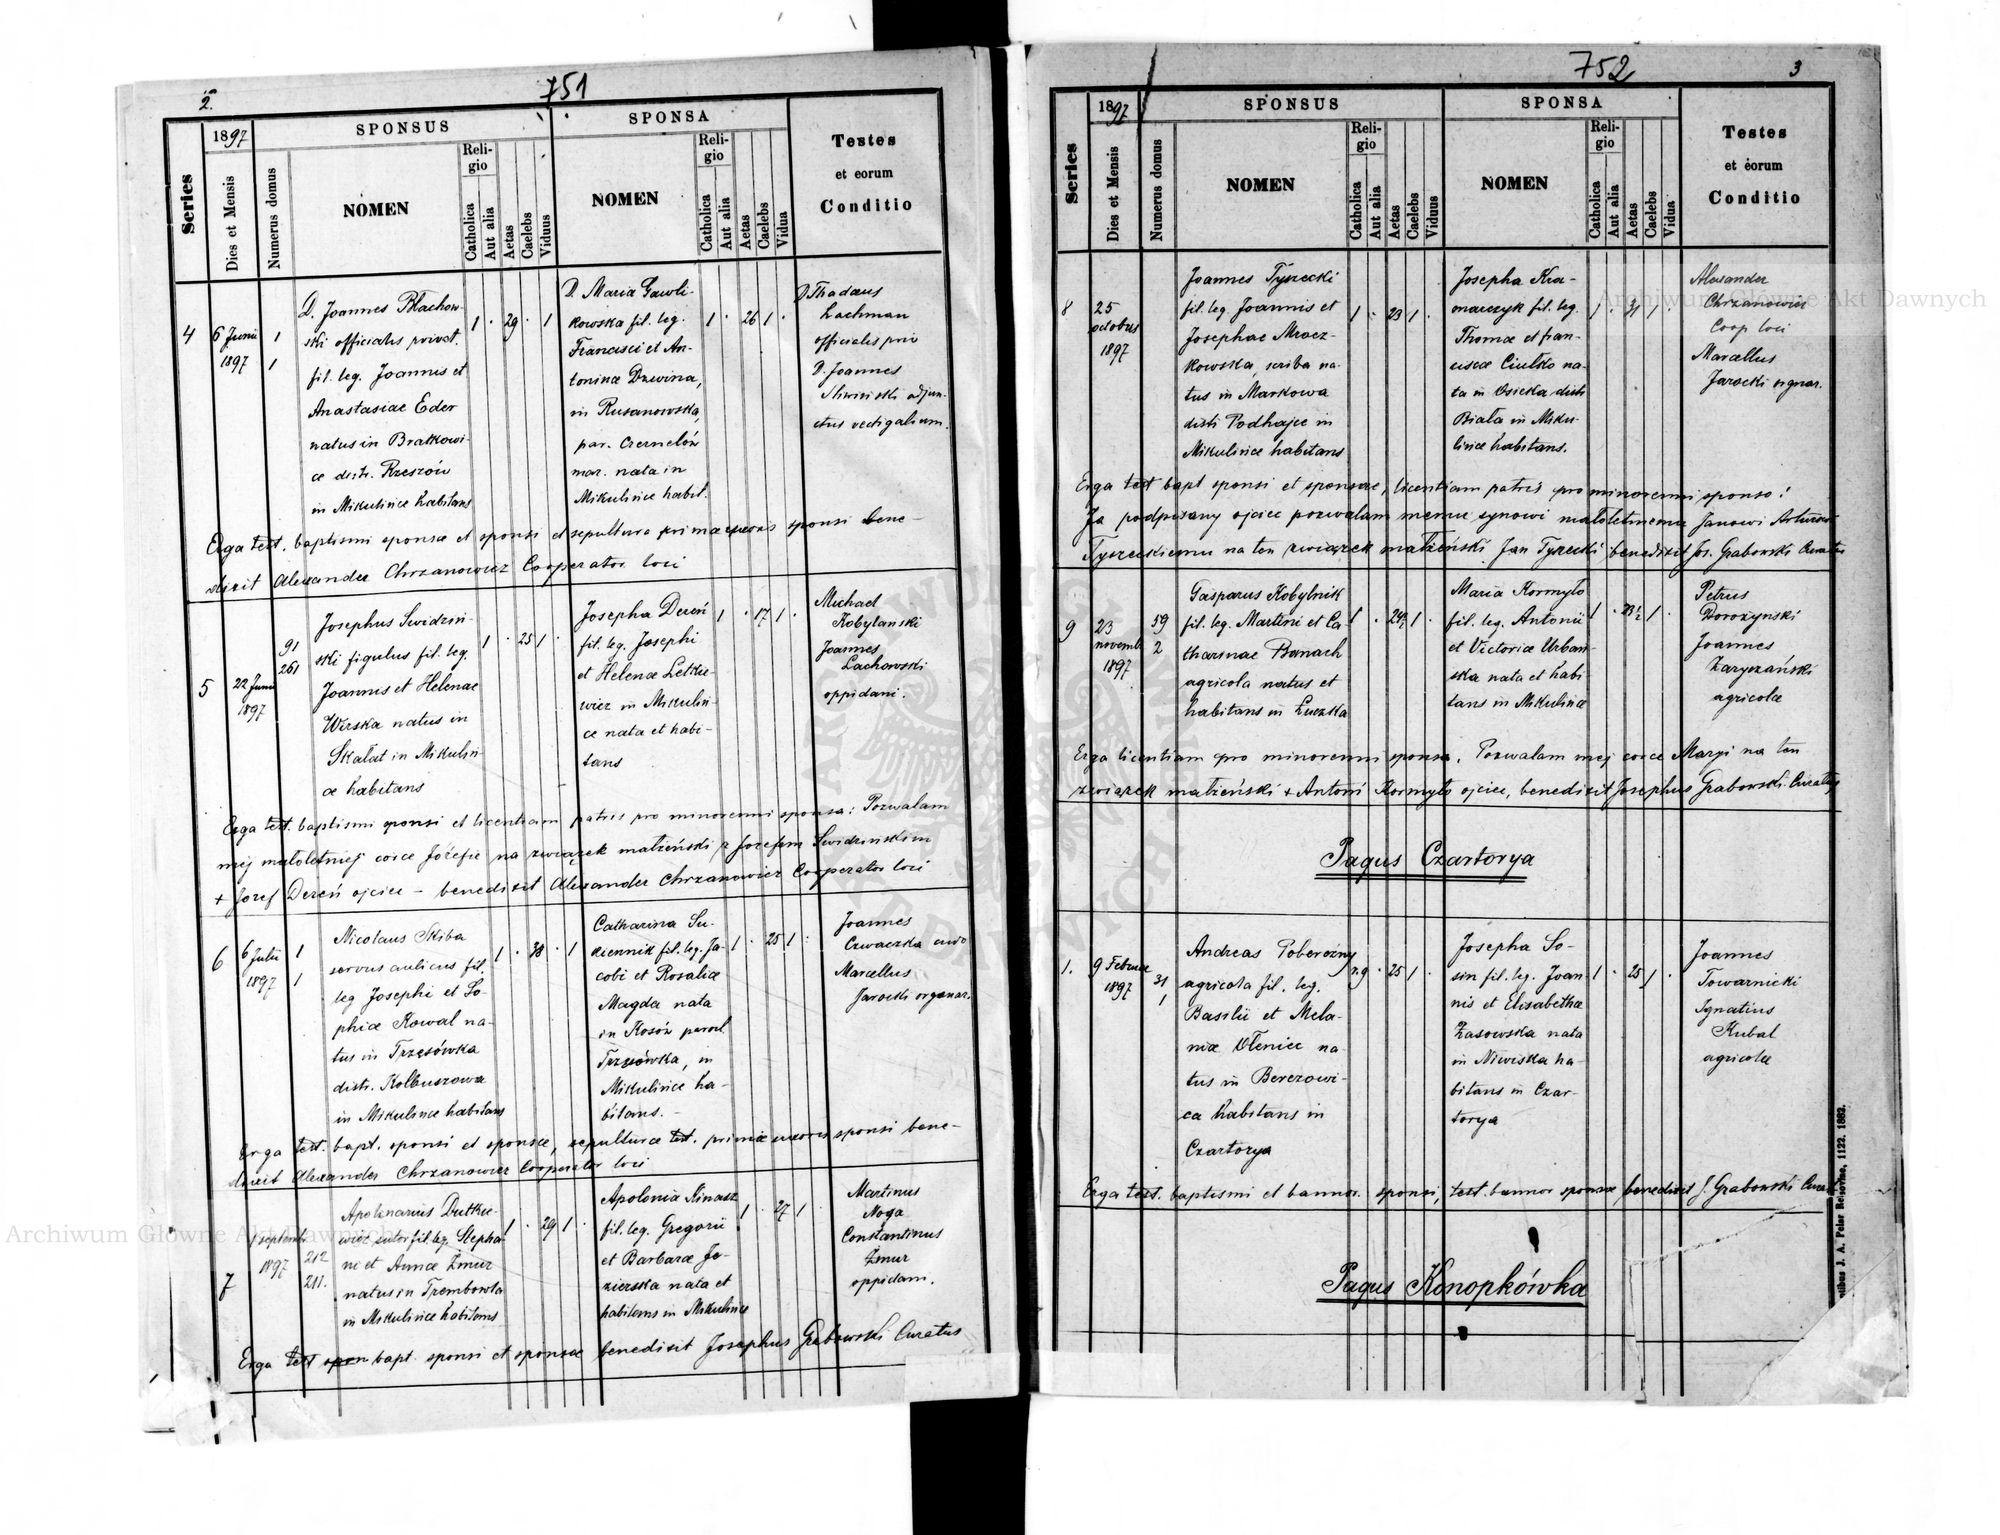 2.
751
Series
1897
Dies et Mensis
Numerus domus
SPONSUS
NOMEN
Religio
Catholica
Aut alia
Aetas
Caelebs
Viduus
SPONSA
NOMEN
Religio
Catholica
Aut alia
Aetas
Caelebs
Vidua
Testes
et eorum
Conditio
4
6 Junii
1897
1
1
D. Joannes Blachow-
ski officialis privat.
fil. leg. Joannis et
Anastasiae Eder
natus in Bratkowi-
ce distr. Rzeszów
in Mikulińce habitans
1 · 29 · 1
D. Maria Gawli-
kowska fil. leg.
Francisci et An-
toninae Dzwina,
in Rusanowska,
par. Czernelów
maz. nata in
Mikulińce habit.
1 · 26 1 ·
D. Thadaus
Lachman
officialis priv
D. Joannes
Sliwiński adjun-
ctus vectigalium.
Erga test. baptismi sponsae et sponsi et sepultura primae uxoris sponsi bene-
dixit Alexander Chrzanowicz Cooperator loci
5
22 Junii
1897
91
261
Josephus Swidziń-
ski figulus fil. leg.
Joannis et Helenae
Wirska natus in
Skałat in Mikuliń-
ce habitans
1 · 25 1 ·
Josepha Dereń
fil. leg. Josephi
et Helenae Letkie-
wicz in Mikuliń-
ce nata et habi-
tans
1 · 17 1 ·
Michael
Kobylanski
Joannes
Lachowski
oppidani.
Erga test. baptismi sponsi et licentiam patris pro minorenni sponsa: Pozwalam
mej małoletniej córce Józefie na związek małżeński z Józefem Swidzińskim
+ Józef Dereń ojciec – benedixit Alexander Chrzanowicz Cooperator loci
6
6 Julii
1897
1
1
Nicolaus Skiba
servus aulicus fil.
leg Josephi et So-
phiae Kowal na-
tus in Trzęsówka
distr. Kolbuszowa
in Mikulińce habitans
1 · 38 · 1
Catharina Su-
kiennik fil. leg. Ja-
cobi et Rosaliae
Magda nata
in Kosów paroch
Trzęsówka, in
Mikulińce ha-
bitans. -
1 · 25 1 ·
Joannes
Czwaczka
Marcellus
Jarocki organar.
Erga test. bapt. sponsi et sponsae, sepulturae test. primae uxoris sponsi bene-
dixit Alexander Chrzanowicz Cooperator loci
7
1 septemb
1897
212
211.
Apolinarius Dutkie-
wicz sutor fil. leg. Stepha-
ni et Annae Żmur
natus in Trembowla
in Mikulińce habitans
1 · 29 1 ·
Apolonia Kinasz
fil. leg. Gregorii
et Barbarae Je-
zierska nata et
habitans in Mikulińce
1 · 27 1
Martinus
Noga
Constantinus
Żmur
oppidani.
Erga test bapt. sponsi et sponsae benedixit Josephus Grabowski Curatus
752
3
Series
1897
Dies et Mensis
Numerus domus
SPONSUS
NOMEN
Religio
Catholica
Aut alia
Aetas
Caelebs
Viduus
SPONSA
NOMEN
Religio
Catholica
Aut alia
Aetas
Caelebs
Vidua
Testes
et eorum
Conditio
8
25
octobris
1897
Joannes Tyrecki
fil. leg. Joannis et
Josephae Mrocz-
kowska, scriba na-
tus in Markowa
distr Podhajce in
Mikulińce habitans
1 · 23 1 ·
Josepha Kra-
marczyk fil. leg.
Thomae et Fran-
ciscae Ciułko na-
ta in Osieka distr
Biała in Miku-
lińce habitans.
1 · 31 1 ·
Alexander
Chrzanowicz
Coop loci
Marcellus
Jarocki organar.
Erga test bapt sponsi et sponsae, licentiam patris pro minorenni sponso:
Ja podpisany ojciec pozwalam memu synowi małoletniemu Janowi Arturowi
Tyreckiemu na ten związek małżeński. Jan Tyrecki benedixit Jos. Grabowski Curatus
9
23
novemb
1897
59
2
Gasparus Kobylnik
fil. leg. Martini et Ca-
tharinae Banach
agricola natus et
habitans in Łuczka
1 · 24½ 1 ·
Maria Kormyło
fil. leg. Antonii
et Victoriae Urbań-
ska nata et habi
tans in Mikulińce
1 · 23½ 1 ·
Petrus
Dorozynski
Joannes
Zaryzański
agricolae
Erga licentiam pro minorenni sponsa. Pozwalam mej córce Maryi na ten
związek małżeński + Antoni Kormyło ojciec, benedixit Josephus Grabowski Curatus
Pagus Czartorya
1.
9 Februar
1897
31
1
Andreas Poberożny
agricola fil. leg.
Basilii et Mela-
niae Oleniec na-
tus in Berezowi-
ca habitans in
Czartorya
r.g · 25 1 ·
Josepha So-
sin fil. leg. Joan-
nis et Elisabethae
Zasowska nata
in Niwiska ha-
bitans in Czar-
torya
1 · 25 1 ·
Joannes
Towarnicki
Ignatius
Kubal
agricolae
Erga test. baptismi et bannor. sponsi, test. bannor sponsae benedixit J. Grabowski Curatus
Pagus Konopkówka
J. A. Pelar Reisovine, 1122. 1882.
Archiwum Główne Akt Dawnych
Archiwum Główne Akt Dawnych